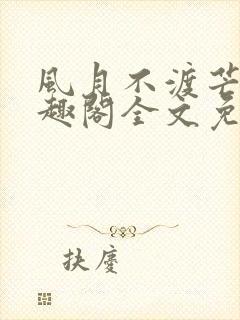 風月不渡芒
趣閣全文免
扶廈